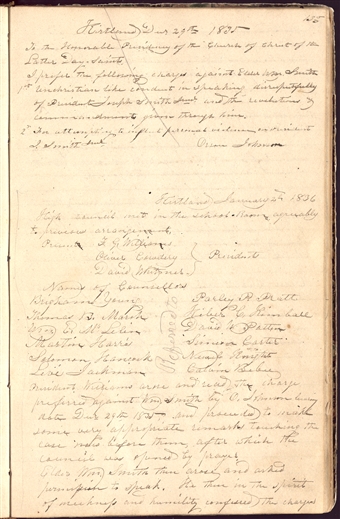 Kirtland Dec 29th 1835
To the Honorable Presidency of the Church of Christ of the
Latter Day Saints
I prefer the following charges against Elder Wm Smith
1st Unchristian like conduct in speaking disrespectfully
of President Joseph Smith Junr and the revelations &
commandments given through him.
2d For attempting to inflict personal violence on President
J. Smith Junr
Orson Johnson
Kirtland January 2d 1836
High council met in the school Room agreeably
to previous arrangement
Present F. G. Williams
Oliver Cowdery } Presidents
David Whitmer
Names of Councellors
Brigham Young Parley P. Pratt
Thomas B. Marsh Heber C. Kimball
Wm E. McLelin David W. Patten
Martin Harris Simeon Carter
Solomon Hancock Newel Knight
Levi Jackman
President Williams arose and read the charge
preferred against Wm Smith by O. Johnson bearing
date Dec 29th 1835 and proceeded to make
some very appropriate remarks touching the
case before them, after which the
council was opened by prayer
Elder Wm Smith then arose and asked
permission to speak. He then in the spirit
of meekness and humility confessed the charges